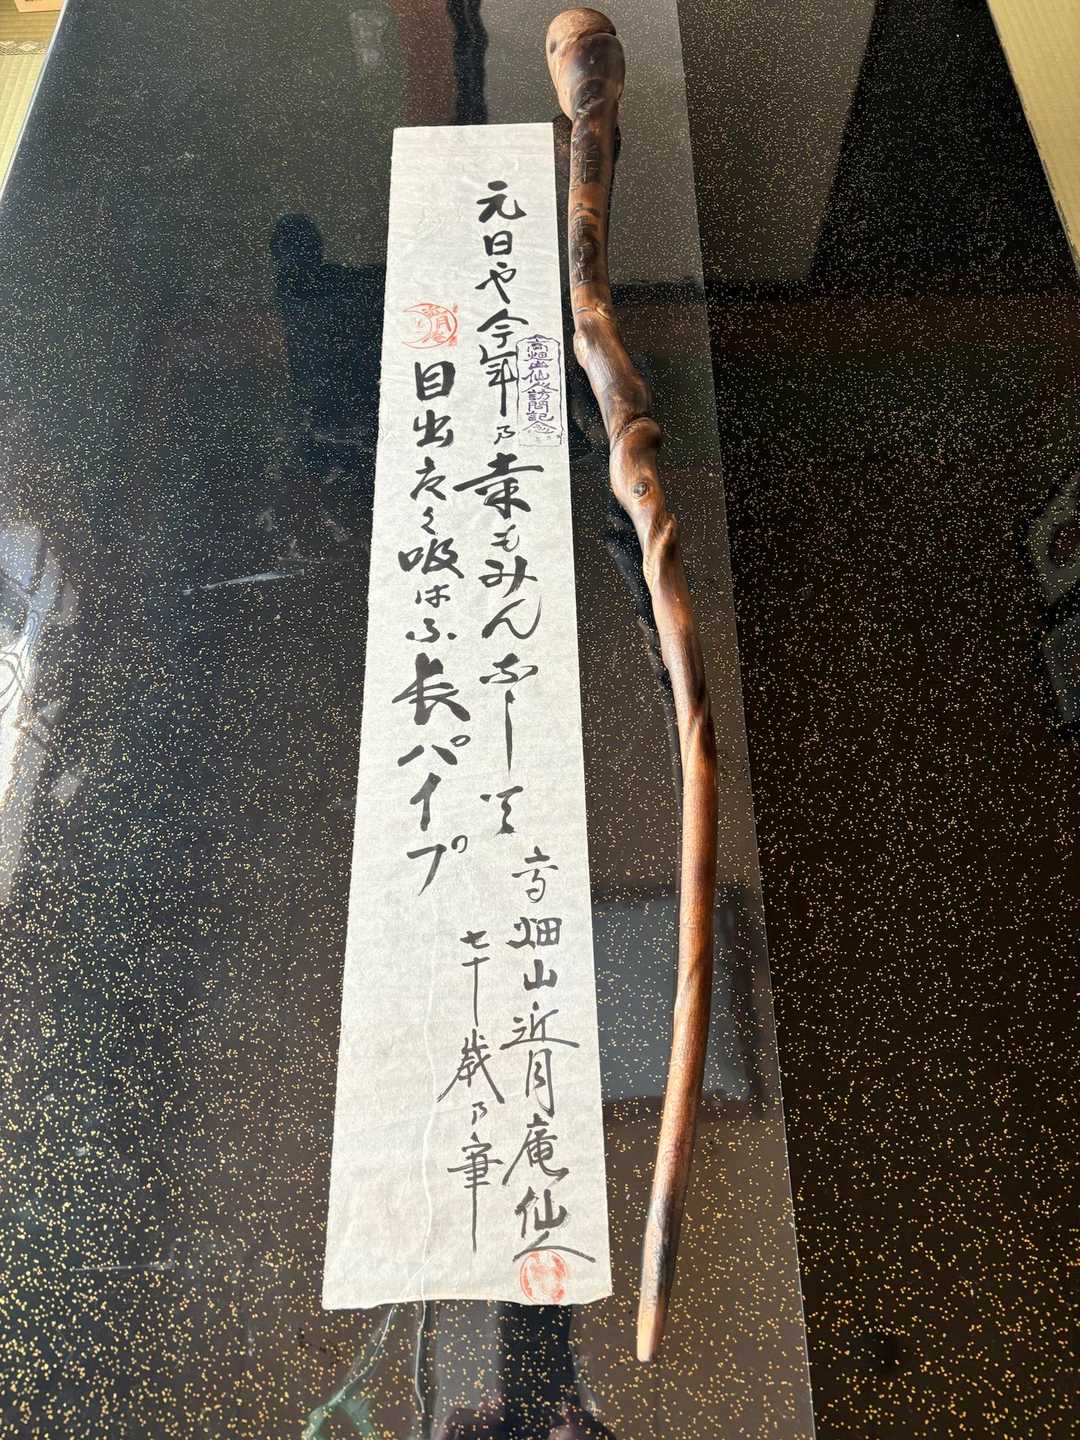 高畑山仙人訪問記念
元日や今年乃幸もみんなして
目出度く吸はふ長パイプ
高畑山近月庵仙人
七十歳乃筆